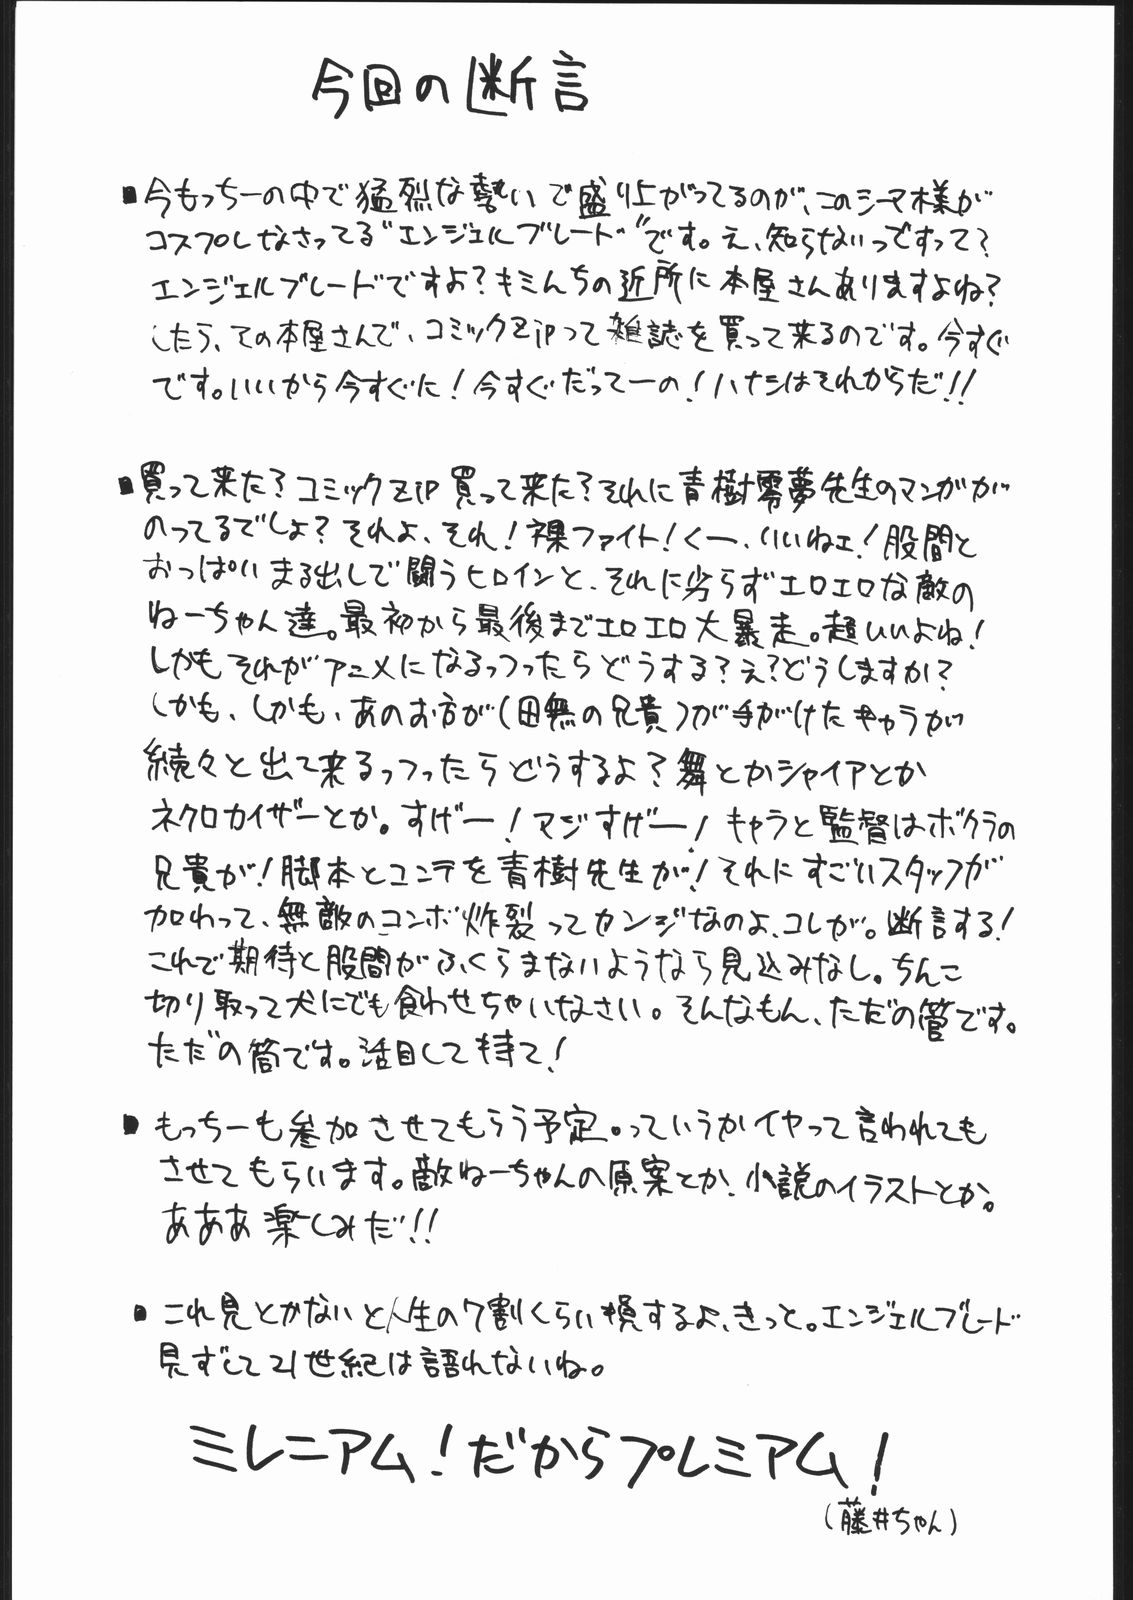 今回の断言
■今もっちーの中で猛烈な勢いで盛り上がってるのが、このシーマ様が
コスプレしなさってる"エンジェルブレード"です。え、知らないっですって?
エンジェルブレードですよ?キミんちの近所に本屋さんありますよね?
したら、その本屋さんで、コミックZipって雑誌を買って来るのです。今すぐ
です。いいから今すぐに!今すぐだってーの!ハナシはそれからだ!!
■買って来た?コミックZip買って来た?それに青樹零夢先生のマンガが
のってるでしょ?それよ、それ!裸ファイト!くー、いいねェ!股間と
おっぱいまる出しで闘うヒロインと、それに劣らずエロエロな敵の
ねーちゃん達。最初から最後までエロエロ大暴走。超いいよね!
しかもそれがアニメになるっつったらどうする?え?どうしますか?
しかも、しかも、あのお方が(田無の兄貴)が手がけたキャラが
続々と出て来るっつったらどうするよ?舞とかシャイアとか
ネクロカイザーとか。すげー!マジすげー!キャラと監督はボクラの
兄貴が!脚本とコンテを青樹先生が!それにすごいスタッフが
加わって、無敵のコンボ炸裂ってカンジなのよ、コレが。断言する!
これで期待と股間がふくらまないようなら見込みなし。ちんこ
切り取って犬にでも食わせちゃいなさい。そんなもん、ただの管です。
ただの筒です。活目して待て!
■もっちーも参加させてもらう予定。っていうかイヤって言われても
させてもらいます。敵ねーちゃんの原案とか、小説のイラストとか。
あああ楽しみだ!!
■これ見とかないと人生の7割くらい損するよ、きっと。エンジェルブレード
見ずして21世紀は語れないね。
ミレニアム!だからプレミアム!
(藤井ちゃん)